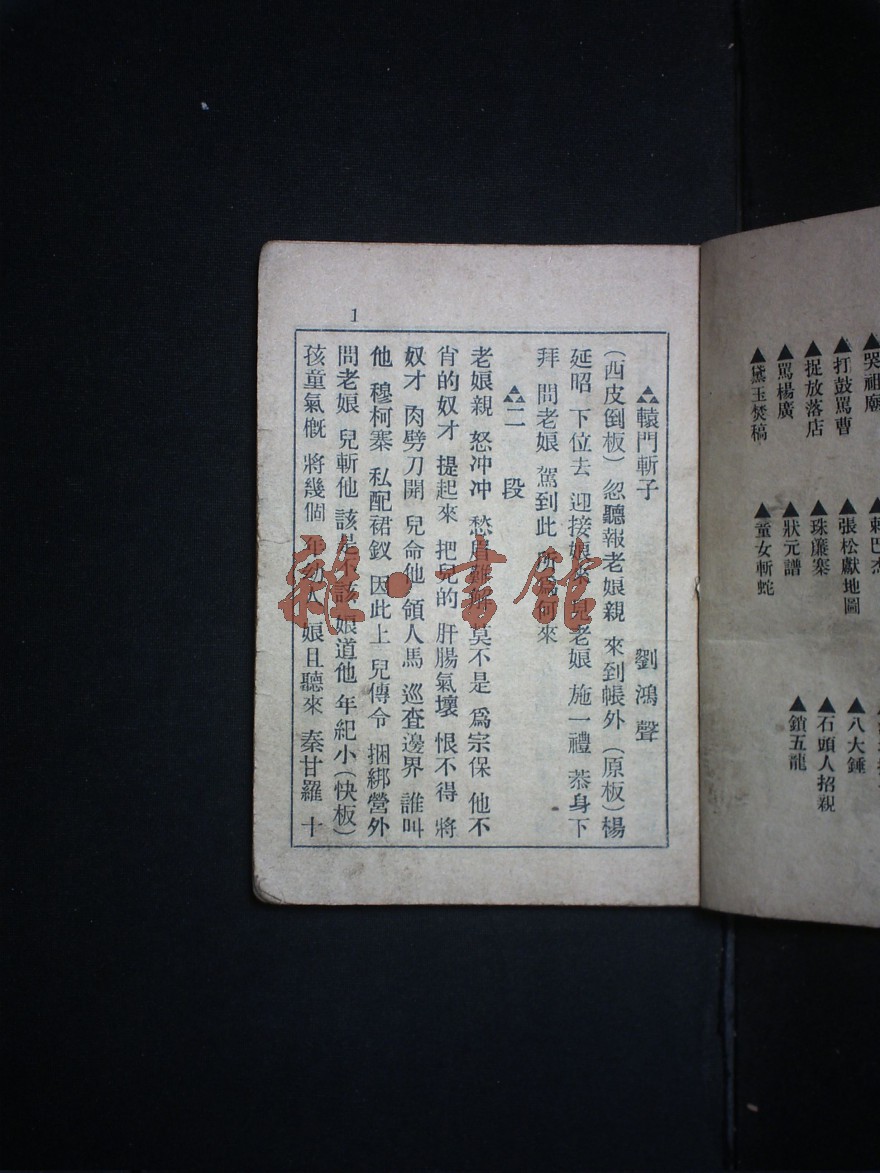 ▲哭祖廟
▲打鼓罵曹
▲捉放落店
▲罵楊廣
▲黛玉焚稿
▲剌巴杰
▲張松獻地圖
▲珠簾寨
▲狀元譜
▲童女斬蛇
▲八大錘
▲石頭人招親
▲鎖五龍
1
轅門斬子 劉鴻聲
(西皮倒板) 忽聽報老娘親 來到帳外 (原板) 楊
延昭 下位去 迎接娘來 見老娘 施一禮 恭身下
拜 問老娘 駕到此 所為何來
二段
老娘親 怒冲冲 愁眉難解 莫不是 爲宗保 他不
肖的奴才 提起來 把兒的 肝腸氣壞 恨不得 將
奴才 肉劈刀開 兒命他 領人馬 巡查邊界 誰叫
他 穆柯寨 私配裙釵 因此上 兒傳令 捆綁營外
問老娘 兒斬他 該是不該 娘道他 年紀小 (快板)
孩童氣慨 將幾個 年幼人 娘且聽來 秦甘羅 十
雜·書館